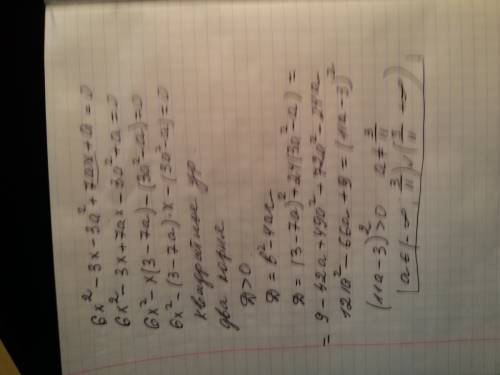 6x² - 3x - 3a² + 7ax + a = 0
6x² - 3x + 7ax - 3a² + a = 0
6x² x(3 - 7a) - (3a² - a) = 0
6x² - (3 - 7a)·x - (3a² - a) = 0
квадратное ур.
два корня
D > 0
D = b² - 4ac
D = (3 - 7a)² + 24(3a² - a) =
= 9 - 42a + 49a² + 72a² - 24a
121a² - 66a + 9 = (11a - 3)²
(11a - 3)² > 0 a ≠ 3/11